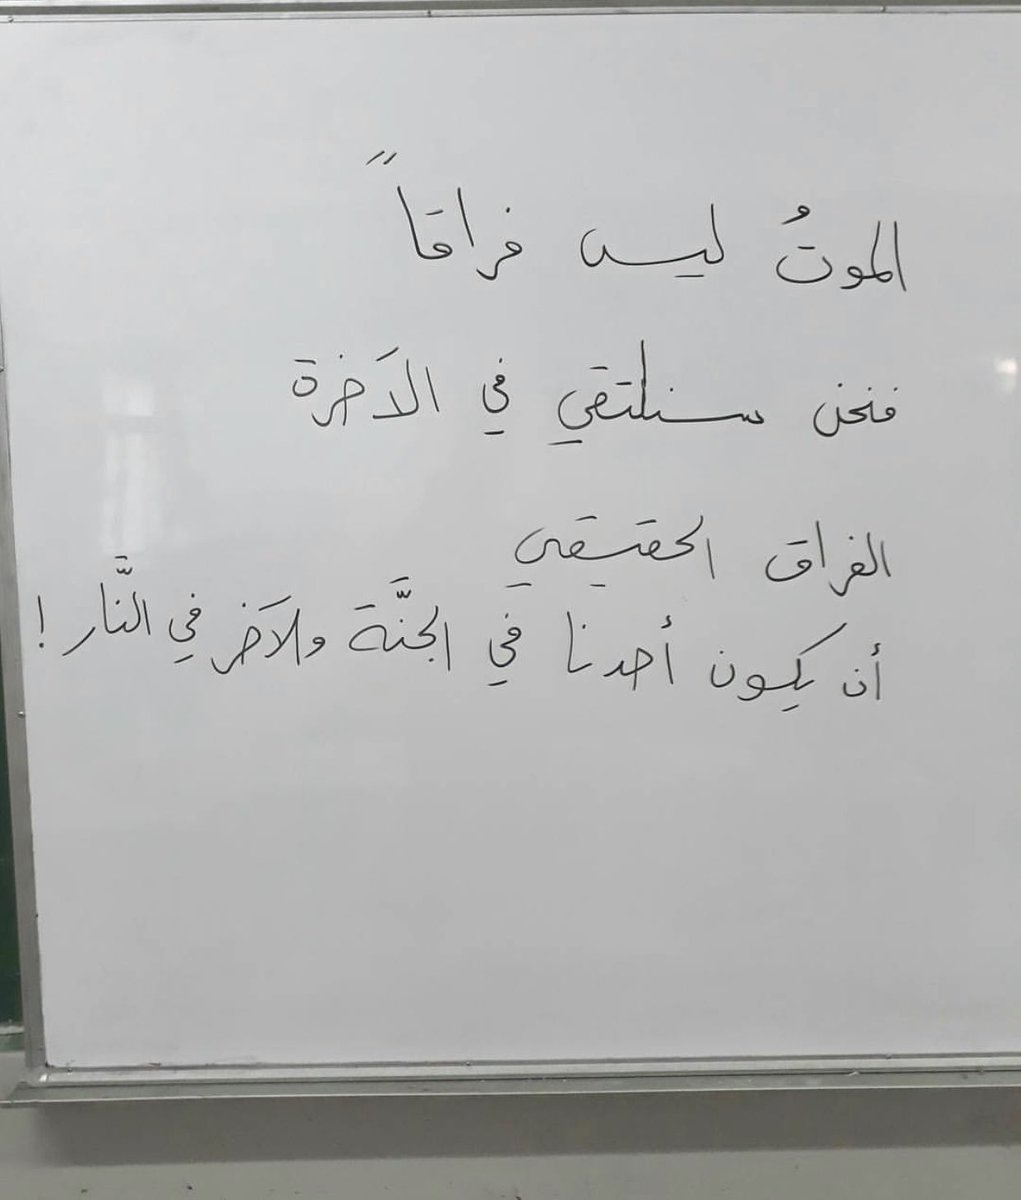 الموتُ ليس فراقاً
فنحن سنلتقي في الآخرة
الفراق الحقيقي
أن يكون أحدنا في الجنَّة ولآخر في النَّار !